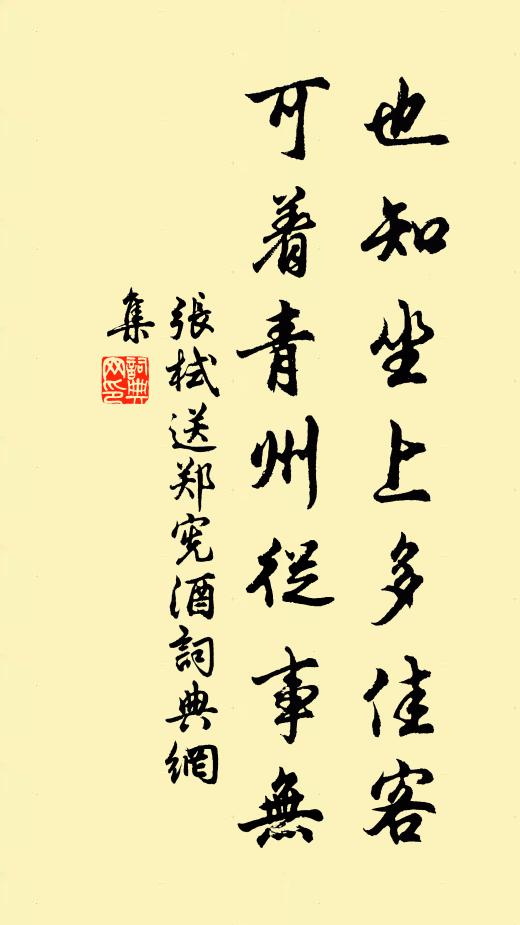 也知坐上多佳客
可着青州從事無
張栻送郑宪酒詞典網
集
詞典
网印